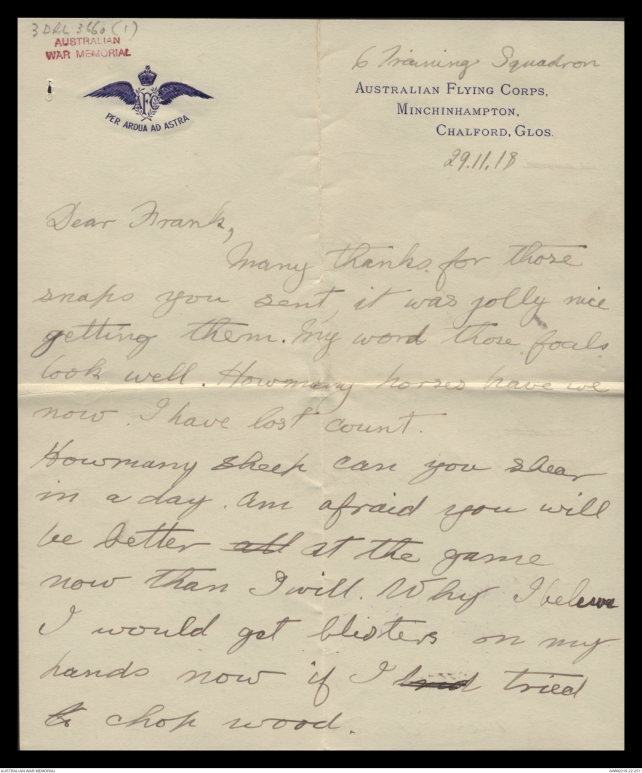 3DRL 3660 (1)
AUSTRALIAN
WAR MEMORIAL
AFC
PER ARDUA AD ASTRA
6 Training Squadron
AUSTRALIAN FLYING CORPS,
MINCHINHAMPTON,
CHALFORD, GLOS.
29.11.18
Dear Frank,
Many thanks for those
snaps you sent, it was jolly nice
getting them. My word those foals
look well. Howmany horses have we
now. I have lost count.
Howmany sheep can you shear
in a day. Am afraid you will
be better all at the game
now than I will. Why I beleive
I would get blisters on my
hands now if I tried
to chop wood.
AUSTRALIAN WAR MEMORIAL